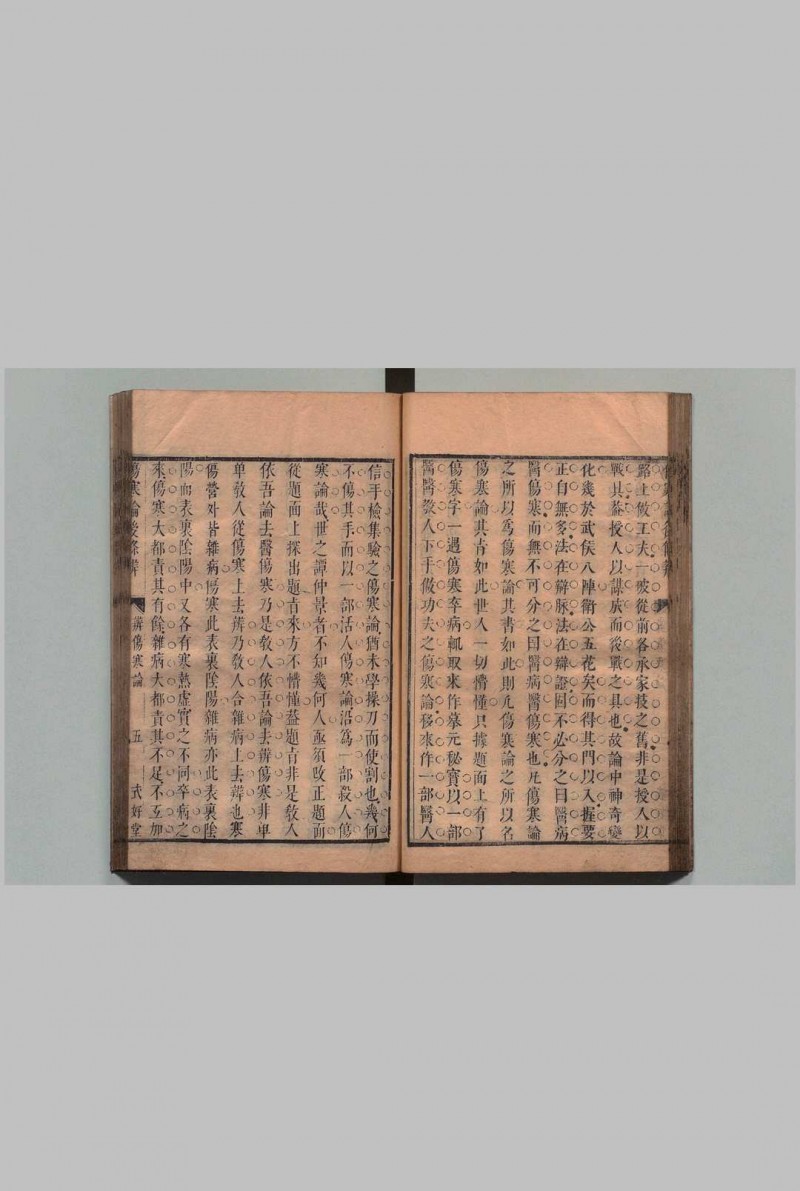 路上做工夫一彼從前各承家技之舊非是授人以
戰具葢授人以謀成而後戰之具也故論中神奇變
化幾於武侯八陣衛公五花矣而得其門以入握要
正自無多法在辯脈法在辯證因不必分之曰醫病
醫傷寒而無不可分之曰醫病醫傷寒也凡傷寒論
之所以爲傷寒論其書如此則凡傷寒論之所以名
傷寒論其旨如此世人一切懵懂只據題面上有了
傷寒字一遇傷寒卒病輒取來作摹元秘寶以一部
醫醫敎人下手做功夫之傷寒論移來作一部醫人
信手檢集驗之傷寒論猶未學操刀而使割也幾何
不傷其手而以一部活人傷寒論沿爲一部殺人傷
寒論哉世之譚仲景者不知幾何人亟須改正題面
從題面上探出題旨來方不懵懂葢題旨非是敎人
依吾論去醫傷寒乃是敎人依吾論去辨傷寒非單
單敎人從傷寒上去辨乃敎人合雜病上去辨也寒
傷營外皆雜病傷寒此表裏陰陽雜病亦此表裏陰
陽而表裏陰陽中又各有寒熱虛實之不同卒病之
來傷寒大都責其有餘雜病大都責其不足不互如
傷寒論後條辨
辨傷寒論
五
式好堂